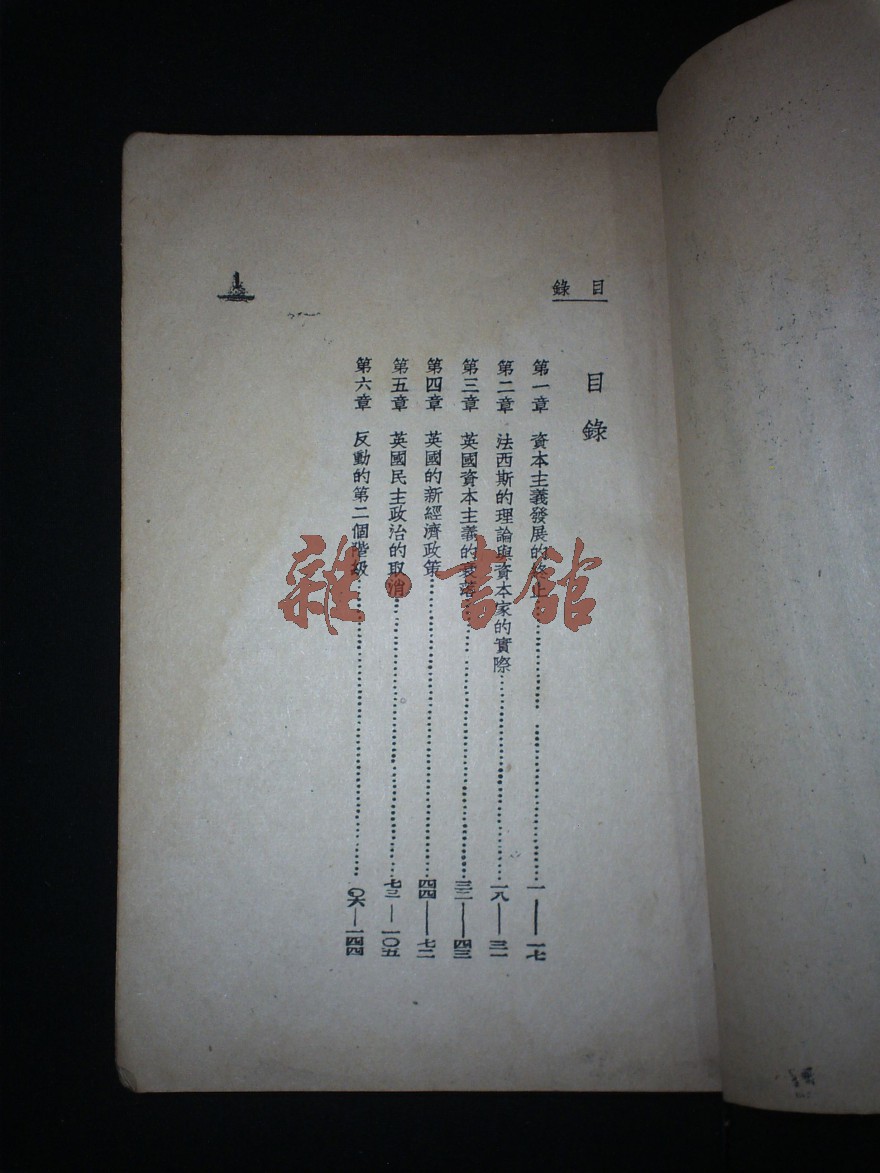 目錄
目錄
第一章 資本主義發展的終止………………………一——一七
第二章 法西斯的理論與資本家的實際………………一八——三一
第三章 英國資本主義的衰落………………………三二——四三
第四章 英國的新經濟政策…………………………四四——七二
第五章 英國民主政治的取消………………………七三——一〇五
第六章 反動的第二個階級…………………………〇六——一四四
雜·書館